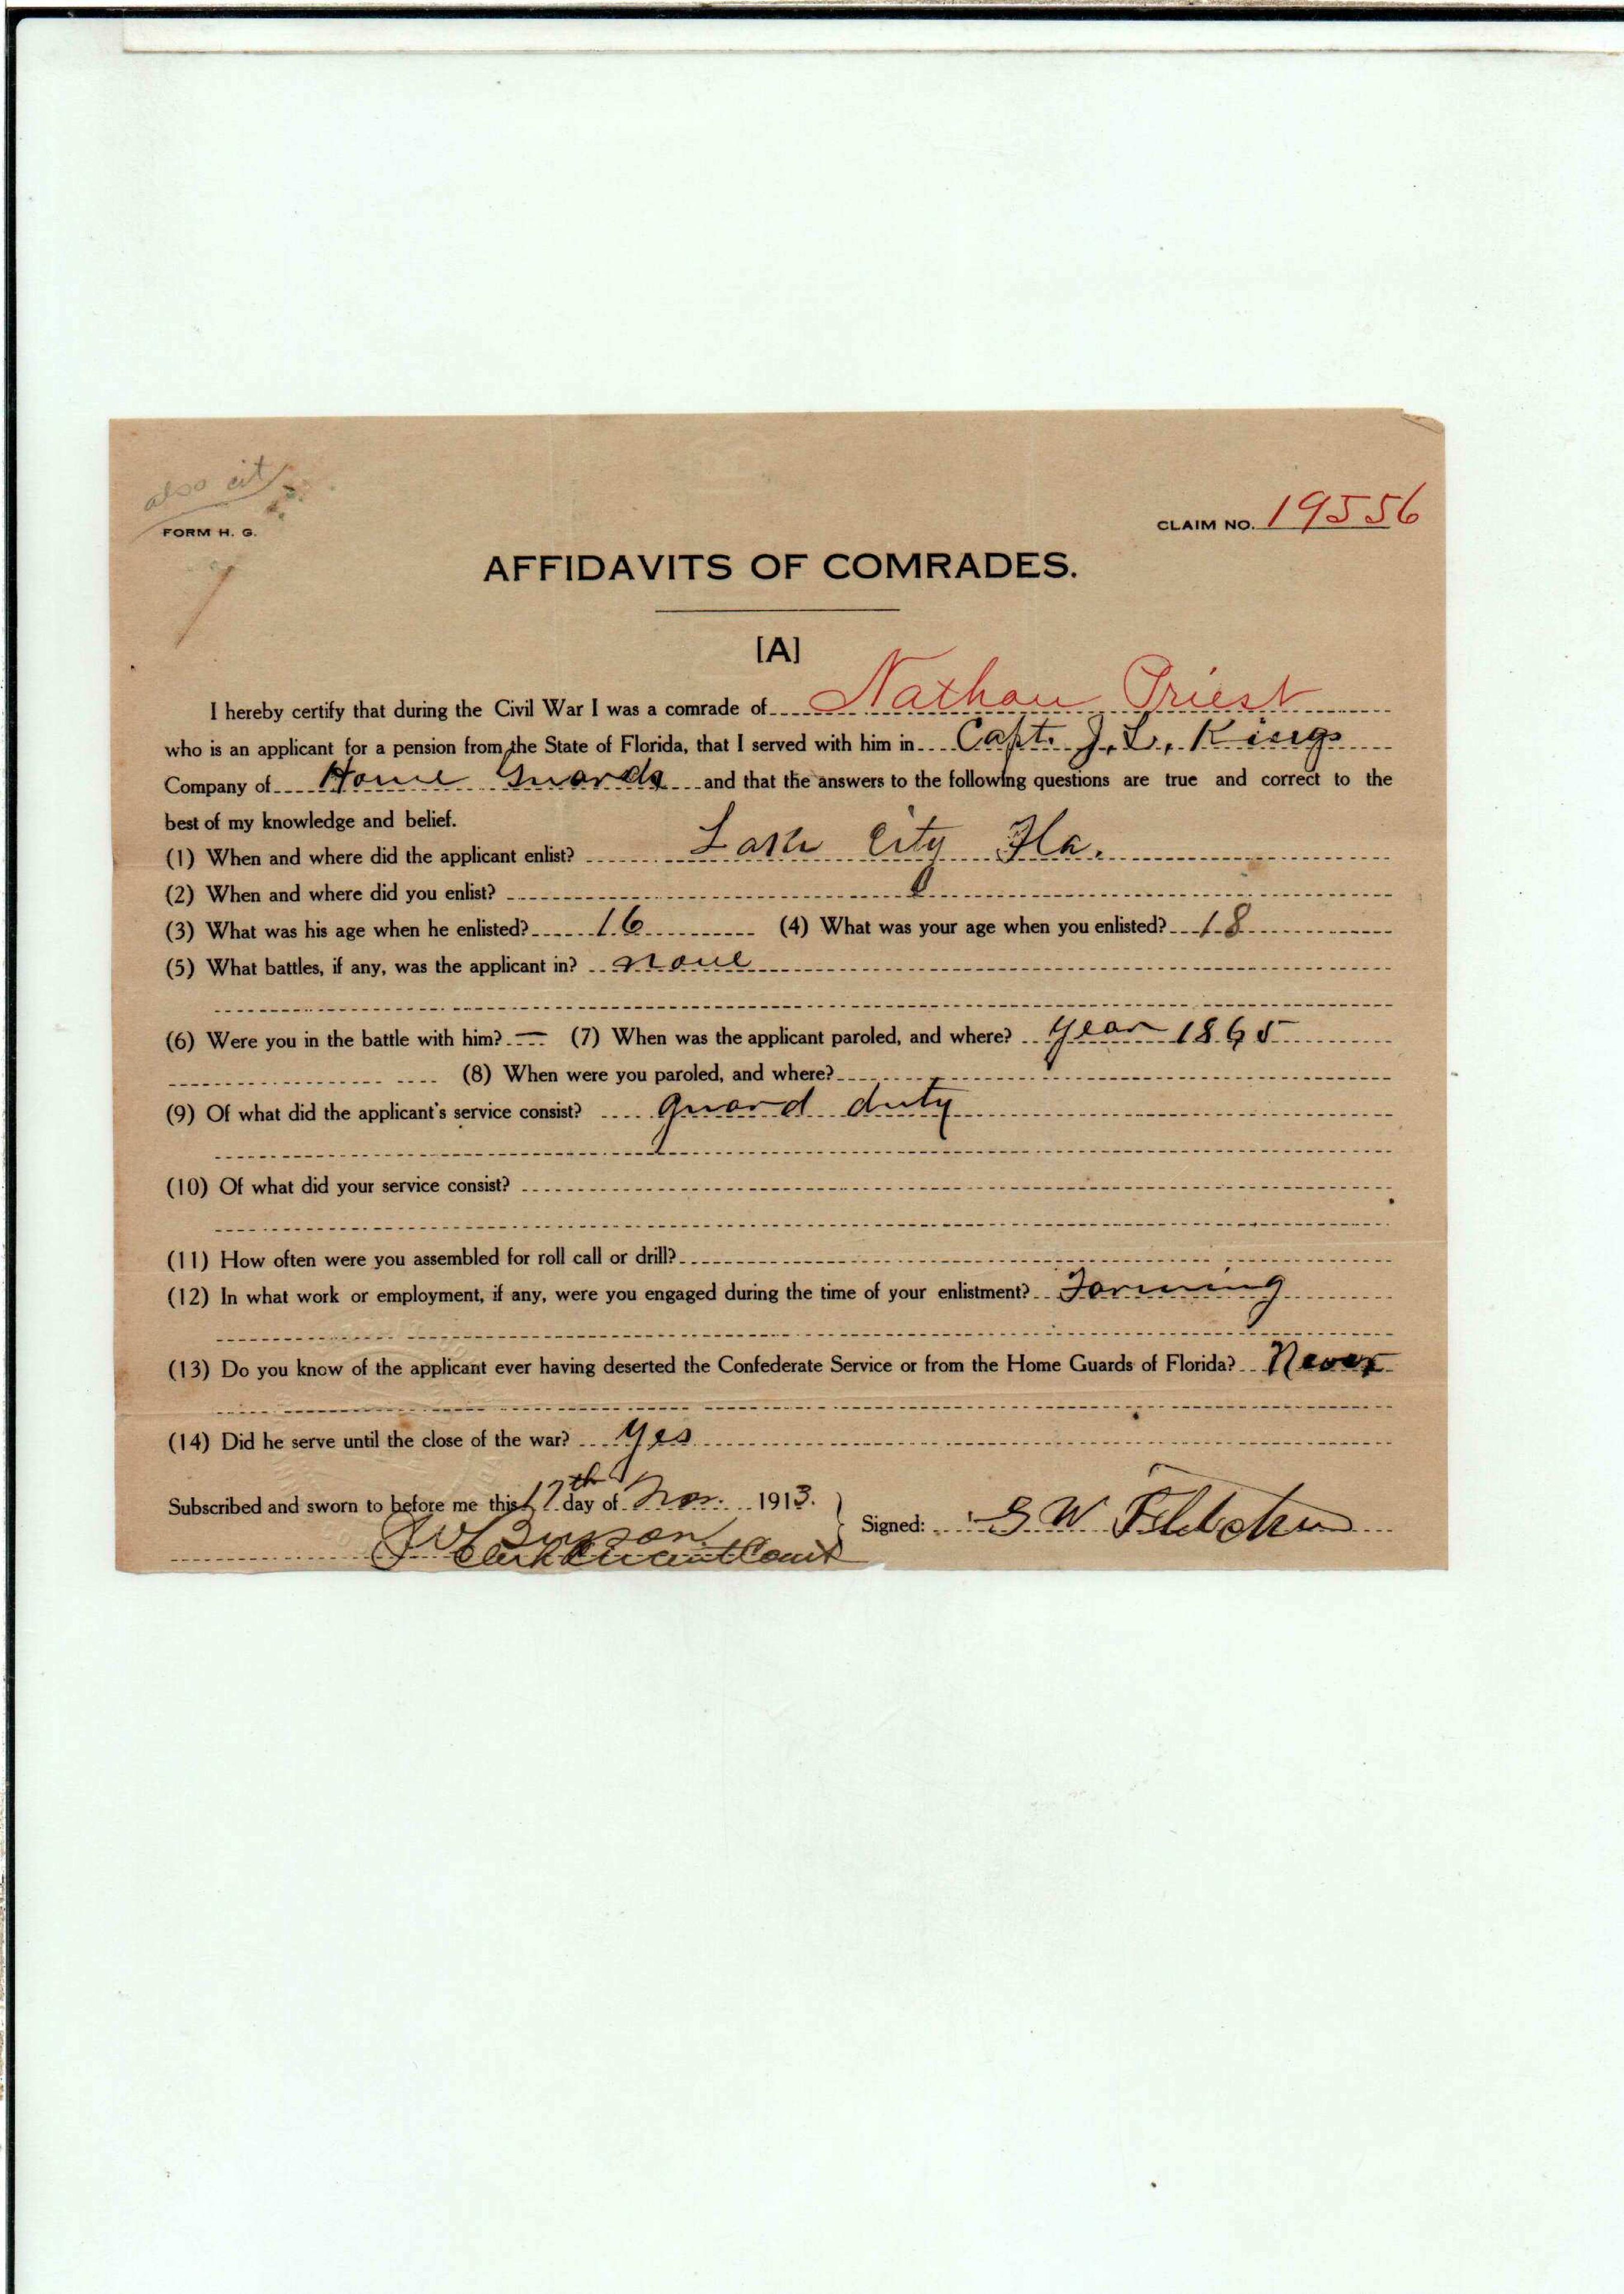 also cit
FORM H. G.
CLAIM NO. 19556
AFFIDAVITS OF COMRADES.
[A]
I hereby certify that during the Civil War I was a comrade of Nathan Priest
who is an applicant for a pension from the State of Florida, that I served with him in Capt. J. L. Kings
Company of Home Guards and that the answers to the following questions are true and correct to the
best of my knowledge and belief.
(1) When and where did the applicant enlist? Lake City Fla.
(2) When and where did you enlist?
(3) What was his age when he enlisted? 16 (4) What was your age when you enlisted? 18
(5) What battles, if any, was the applicant in? none
(6) Were you in the battle with him? — (7) When was the applicant paroled, and where? year 1865
(8) When were you paroled, and where?
(9) Of what did the applicant's service consist? guard duty
(10) Of what did your service consist?
(11) How often were you assembled for roll call or drill?
(12) In what work or employment, if any, were you engaged during the time of your enlistment? Farming
(13) Do you know of the applicant ever having deserted the Confederate Service or from the Home Guards of Florida? Never
(14) Did he serve until the close of the war? yes
Subscribed and sworn to before me this 17th day of Nov. 1913.
Signed: G W
Clerk Circuit Court